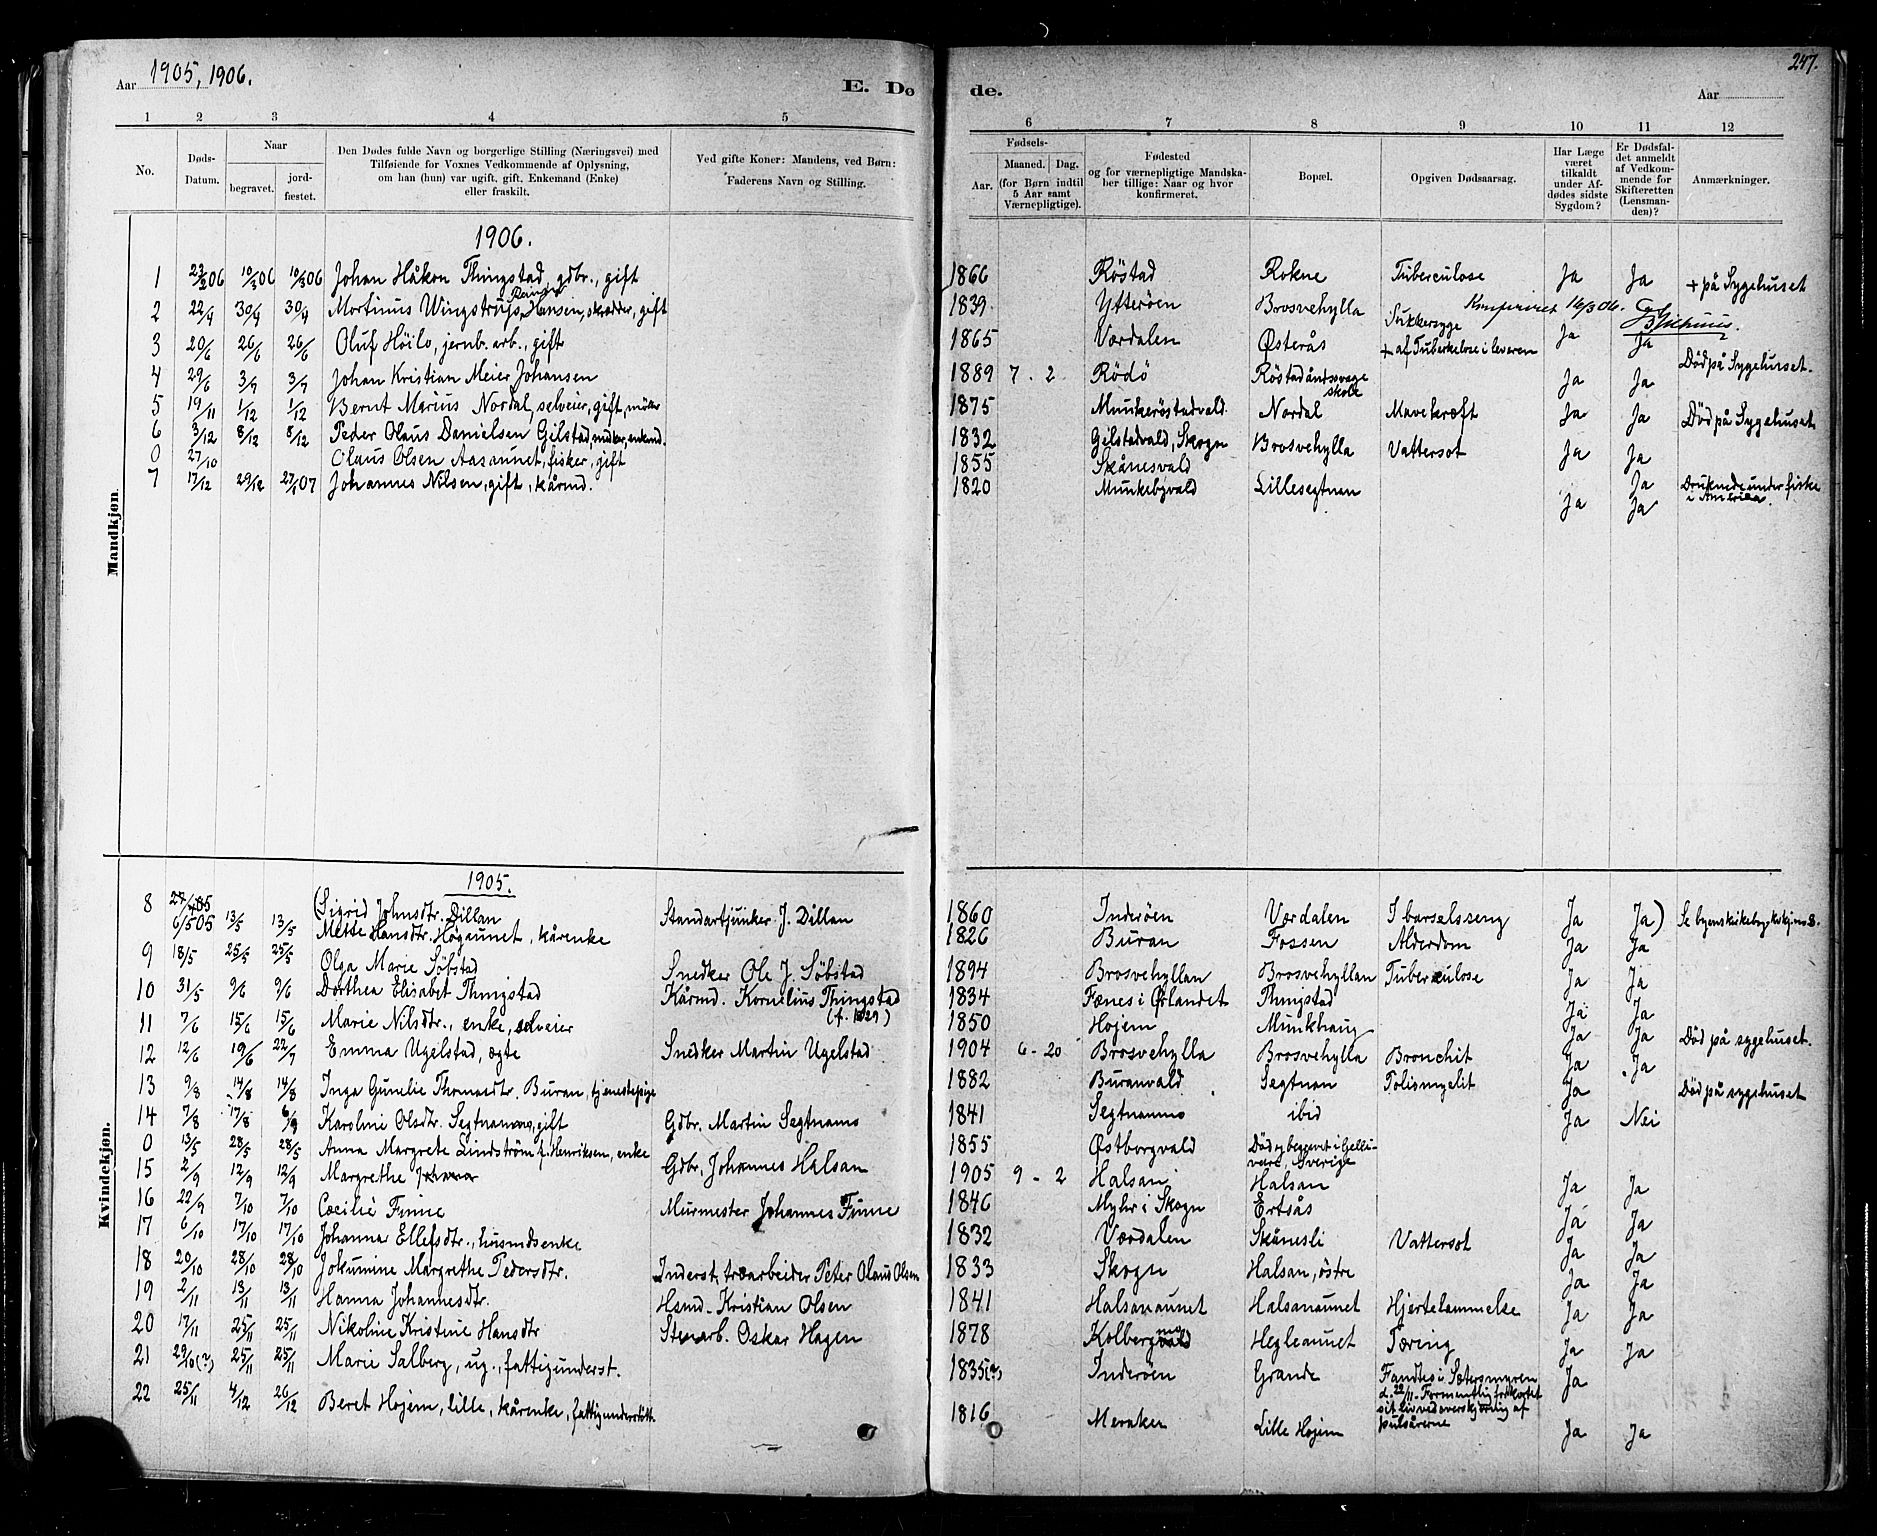 Aar 1905, 1906.
E. Dø
de.
Aar
247.
1 2 3 4 5 6 7 8 9 10 11 12
No.
Døds-Datum.
Naar
begravet.
jordfæstet.
Den Dødes fulde Navn og borgerlige Stilling (Næringsvei) med
Tilføiende for Voxnes Vedkommende af Oplysning,
om han (hun) var ugift, gift, Enkemand (Enke)
eller fraskilt.
Ved gifte Koner: Mandens, ved Børn:
Faderens Navn og Stilling.
Fødsels-
Aar.
Maaned. Dag.
(for Børn indtil
5 Aar samt
Værnepligtige).
Fødested
og for værnepligtige Mandska-
ber tillige: Naar og hvor
konfirmeret.
Bopæl.
Opgiven Dødsaarsag.
Har Læge
været
tilkaldt
under Af-
dødes sidste
Sygdom?
Er Dødsfal-
det anmeldt
af Vedkom-
mende for
Skifteretten
(Lensman-
den)?
Anmærkninger.
Mandkjøn.
1906.
1 23/2 06 10/3 06 10/3 06 Johan Håkon Thingstad, gdbr., gift 1866 Röstad Rokne Tuberculose Ja Ja + på Sygehuset
2 22/4 30/4 30/4 Mortinus Wingstrups Hansen, skrædder, gift 1839 Ytterøen Brosvehylla Sukkersyge Ja
Konfereret 16/3 06.
3 20/6 26/6 26/6 Oluf Höilo, jernb. arb., gift 1865 Værdalen Østerås + af Tuberkelose i leveren Ja Død på Sygehuset.
4 29/6 3/7 3/7 Johan Kristian Meier Johansen 1889 7 - 2 Rödö Röstad åndssvage skole Ja Ja
5 19/11 1/12 1/12 Bernt Marius Nordal, selveier, gift, møller 1875 Munkeröstadvald. Nordal Mavekræft Ja Ja Død på Sygehuset
6 3/12 8/12 8/12 Peder Olaus Danielsen Gilstad, snedker, enkemd. 1832 Gilstadvald, Skogn Brosvehylla Vattersot Ja Ja
0 27/10 Olaus Olsen Aasaunet, fisker, gift 1855 Skånesvald Ja Druknede under fiske i Amerika.
7 17/12 29/12 27/1 07 Johannes Nilsen, gift, kårmd. 1820 Munkebyvald Lillesegtnan Ja Ja
Kvindekjøn.
1905.
27/4 05 (Sigrid Johnsdtr. Dillan Standartjunker J. Dillan 1860 Inderøen Værdalen I barselsseng Ja Ja) Se byens kirkebog kvkj. no 8.
8 6/5 05 13/5 13/5 Mette Hansdtr. Högaunet, kårenke 1826 Buran Fossen Alderdom Ja Ja
9 18/5 25/5 25/5 Olga Marie Söbstad Snedker Ole J. Söbstad 1894 Brosvehyllan Brosvehyllan Tuberculose Ja Ja
10 31/5 9/6 9/6 Dorthea Elisabet Thingstad Kårmd. Kornelius Thingstad (f. 1829) 1834 Fænes i Ørlandet Thingstad Ja Ja
11 7/6 15/6 15/6 Marie Nilsdtr., enke, selveier 1850 Hojem Munkhaug Ja Ja Död på sygehuset.
12 12/6 19/6 22/7 Emma Ugelstad, ægte Snedker Martin Ugelstad 1904 6 - 20 Brosvehylla Brosvehylla Bronchit Ja Ja
13 9/8 14/8 14/8 Inga Gunelie Thomasdtr. Buran, tjenestepige 1882 Buranvald Segtnan Poliomyelit Ja Død på sygehuset
14 7/8 17/8 6/9 Karoline Olsdtr. Segtnanmo, gift Gdbr. Martin Segtnanmo 1841 Segtnanmo ibid Ja Nei
0 13/5 28/5 28/5 Anna Margrete Lindström f. Henriksen, enke 1855 Østborgvald Död og begravet i Gellivare, Sverige
15 2/9 12/9 12/9 Margrethe Gdbr. Johannes Halsan 1905 9 - 2 Halsan Halsan Ja Ja
16 22/9 7/10 7/10 Cæcilie Finne Murmester Johannes Finne 1846 Myhr i Skogn Ertsås Ja Ja
17 6/10 17/10 17/10 Johanna Ellefsdtr., husmdsenke 1832 Værdalen Skånesli Vattersot Ja Ja
18 20/10 28/10 28/10 Jokumine Margrethe Pedersdtr. Inderst, træarbeider Peter Olaus Olsen 1833 Skogn Halsan, østre Ja Ja
19 2/11 13/11 13/11 Hanna Johannesdtr. Hsmd. Kristian Olsen 1841 Halsanaunet Halsanaunet Hjertelammelse Ja Ja
20 17/11 25/11 25/11 Nikoline Kristine Hansdtr Stenarb. Oskar Hagen 1878 Kolbergmo Hegleaunet Tæring Ja Ja
21 29/10 (?) 25/11 25/11 Marie Salberg, ug., fattigunderst. 1835 (?) Inderøen Grande Fandtes i Sætersmyren d. 22/11. Formentlig forkortet sit liv ved overskjæring af pulsårerne Ja
22 25/11 4/12 26/12 Beret Hojem, lille, kårenke, fattigunderstött. 1816 Meraker Lille Hojem Ja Ja